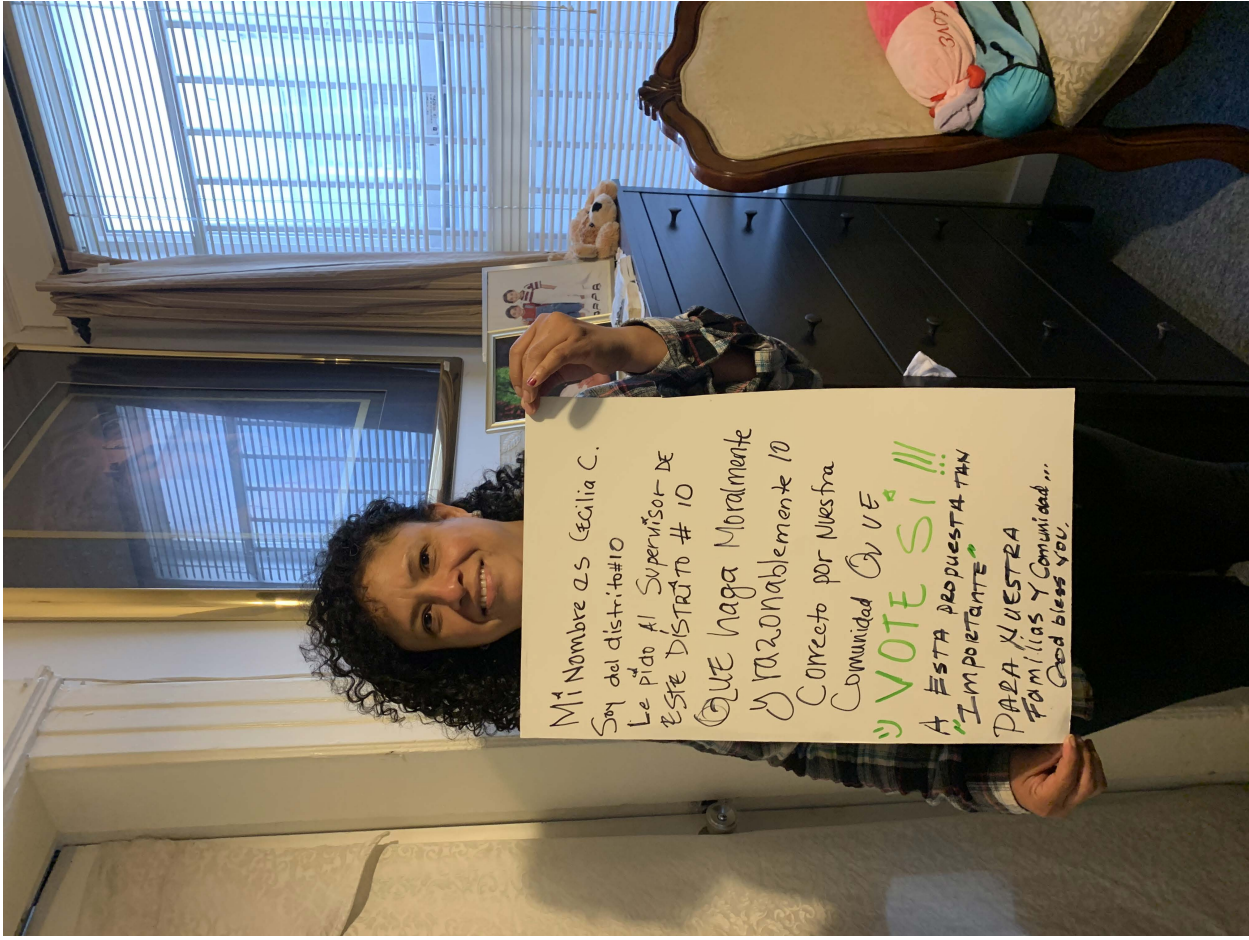 Mi Nombre es Cecilia C.
Soy del distrito #10
Le pido Al Supervisor DE
ESTE DISTRITO # 10
QUE haga Moralmente
y razonablemente lO
Correcto por Nuestra
Comunidad QUE
VOTE SI !!!
A ESTA PROPUESTA TAN
"IMPORTANTE"
PARA NUESTRA
Familias Y Comunidad...
God bless you.
LOVE